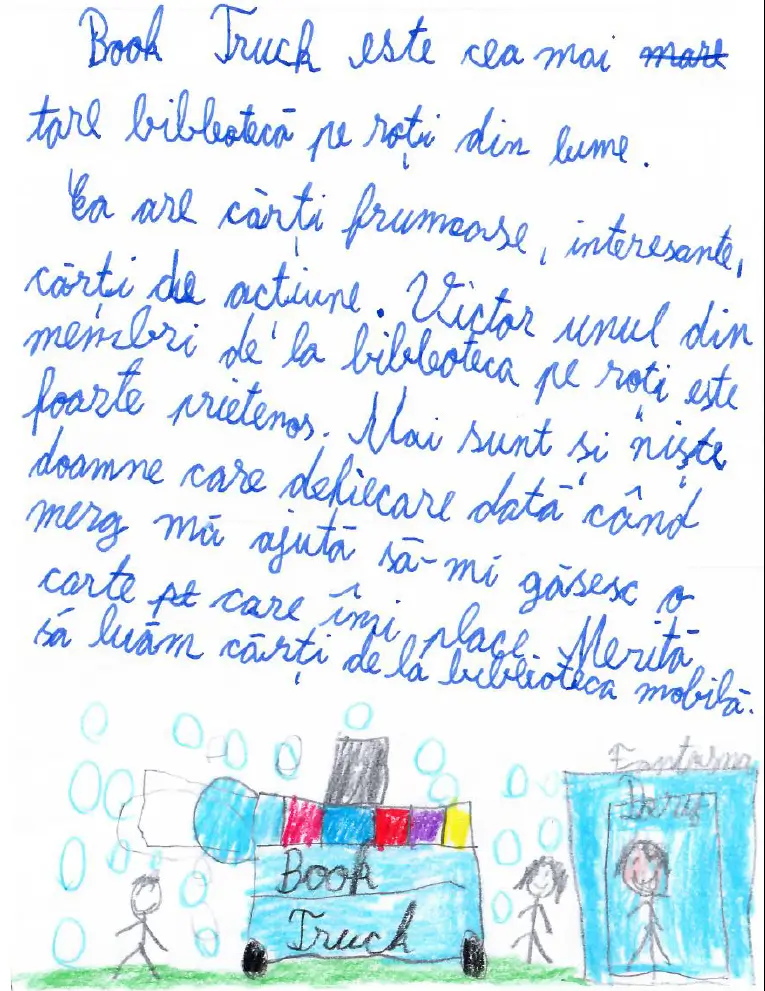 Book Truck este cea mai mare
tare bibleotecă pe roți din lume.
Ea are cărți frumoase, interesante,
cărți de acțiune. Victor unul din
membri de la bibleoteca pe roți este
foarte prietenos. Mai sunt și niște
doamne care defiecare dată când
merg mă ajută să-mi găsesc o
carte pe care îmi place. Merită
să luăm cărți de la biblioteca mobilă.
Fantasma
Book
Truck